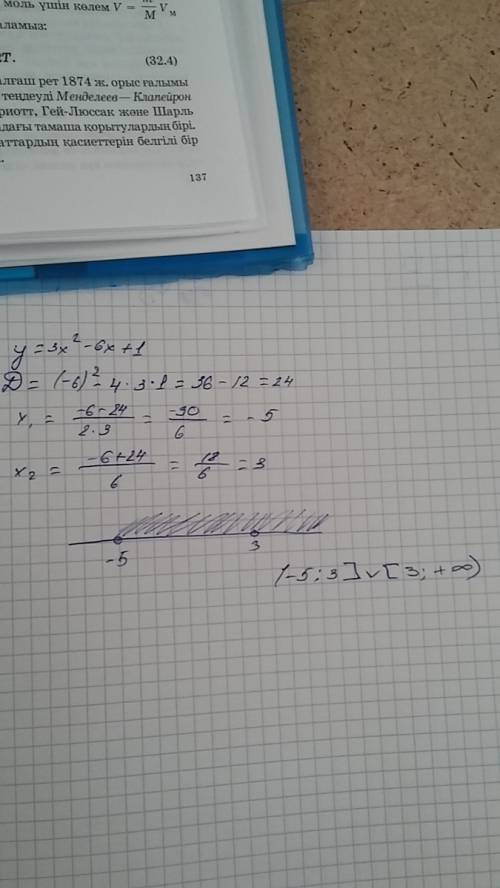 моль үшін көлем V = m/M Vм
аламыз:
(32.4)
алғаш рет 1874 ж. орыс ғалымы
теңдеуді Менделеев—Клапейрон
риотт, Гей-Люссак және Шарль
дағы тамаша қорытулардың бірі.
аттардың қасиеттерін белгілі бір
137
y = 3x² - 6x + 1
D = (-6)² - 4 · 3 · 1 = 36 - 12 = 24
x₁ = (-6 - 24)/(2 · 3) = -30/6 = -5
x₂ = (-6 + 24)/6 = 18/6 = 3
-5 3
(-5; 3] ∨ [3; +∞)